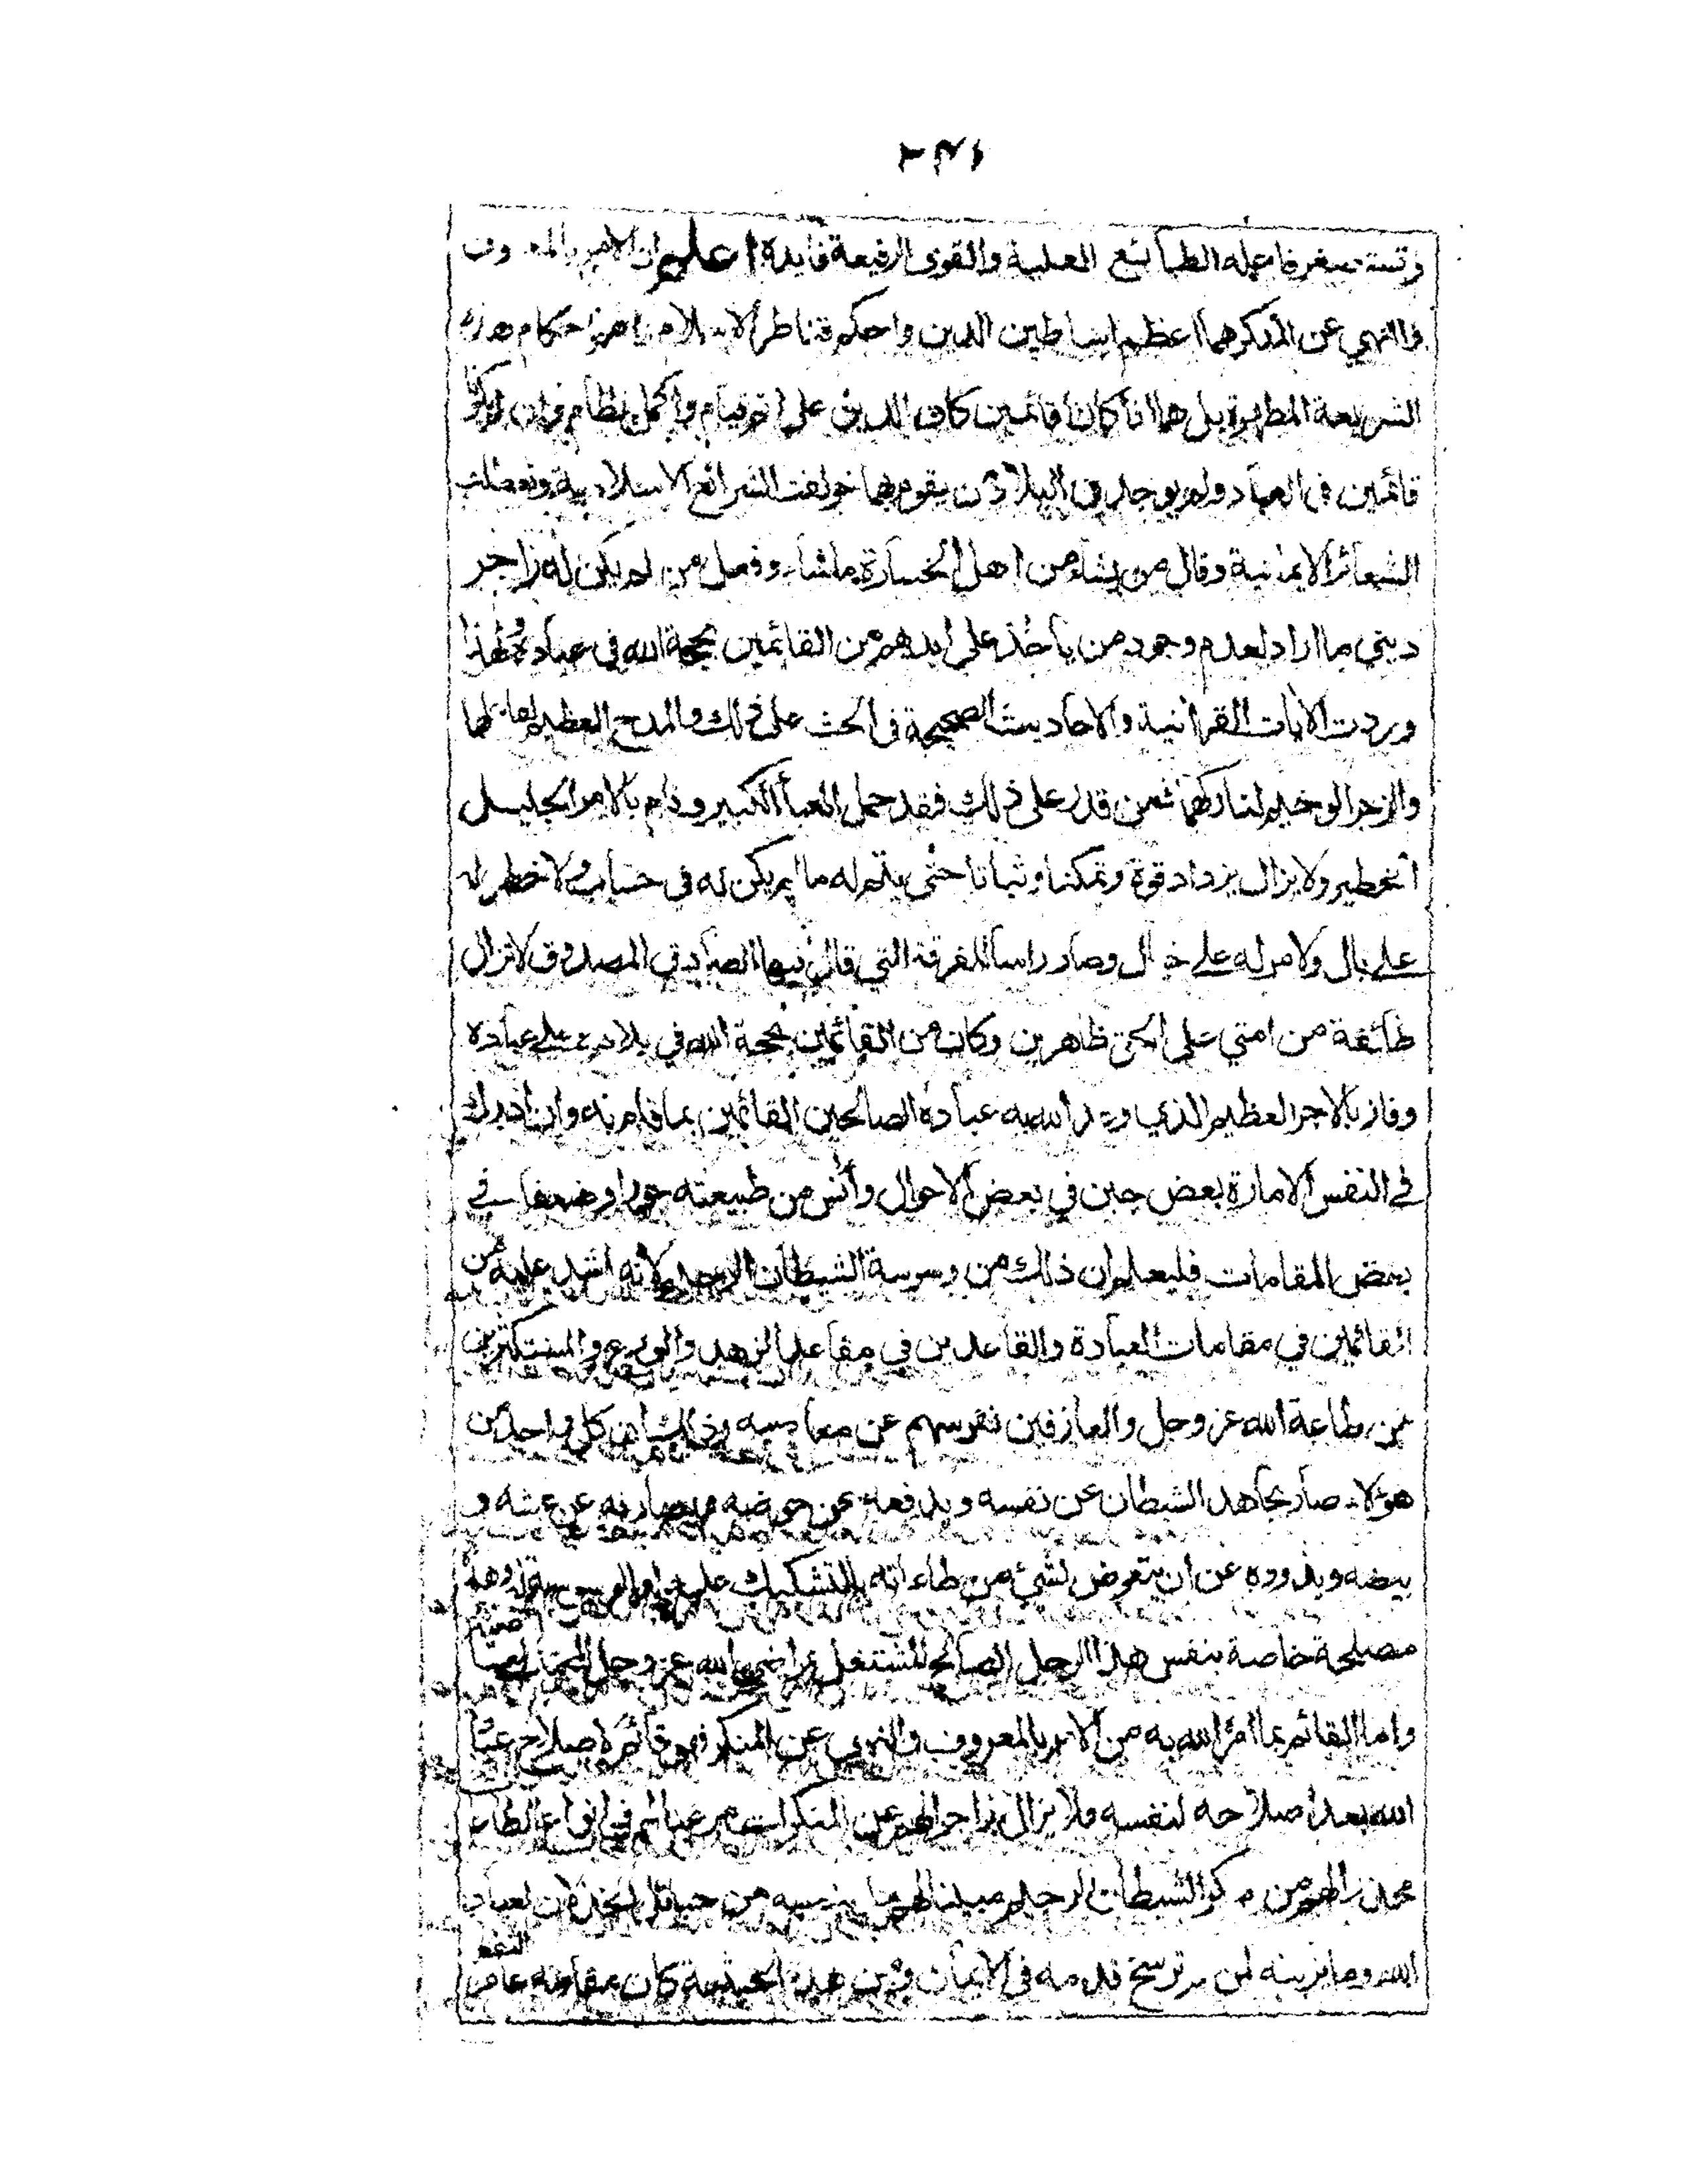 ٢٣٦
وتستصغر فاعله الطبائع العلية والقوى الرفيعة فايدة اعلم ان الامر بالمعروف
والنهي عن المنكر هما اعظم اساطين الدين واحكم قناطر الاسلام احكام هذه
الشريعة المطهرة بل هما اذا كانا قائمين كان الدين على اتم قيام واكمل نظام وان لم يكونا
قائمين في العباد ولم يوجد في البلاد من يقوم بهما خولفت الشرائع الاسلامية وتعطلت
الشعائر الايمانية وقال من يشاء من اهل الخسارة ما شاء وفعل من لم يكن له زاجر
ديني ما اراد لعدم وجود من يأخذ على ايديهم من القائمين بحجة الله في عباده ولهذا
وردت الآيات القرآنية والاحاديث الصحيحة في الحث على ذلك والمدح العظيم لفاعلهما
والزجر الوخيم لتاركهما فمن قدر على ذلك فقد حمل العبأ الكبير وقام بالامر الجليل
الخطير ولا يزال يزداد قوة وتمكنا وثباتا حتى يتم له ما لم يكن له في حساب ولا خطر له
على بال ولا مر له على خيال وصار راسا للفرقة التي قال فيها الصادق المصدوق لا تزال
طائفة من امتي على الحق ظاهرين وكان من القائمين بحجة الله في بلاده على عباده
وفاز بالاجر العظيم الذي وعد الله به عباده الصالحين القائمين بما قام به وان ادرك
في النفس الامارة بعض جبن في بعض الاحوال وأنس من طبيعته خورا وضعفا في
بعض المقامات فليعلم ان ذلك من وسوسة الشيطان الرجيم لانه اشد عليه من
القائمين في مقامات العبادة والقاعدين في مقاعد الزهد والورع والمستكثرين
من طاعة الله عز وجل والعازفين نفوسهم عن معاصيه وذلك ان كل واحد من
هؤلاء صار يجاهد الشيطان عن نفسه ويدفعه عن حوضه عن عشه و
بيضه ويذوده عن ان يتعرض لشيء من طاعاته بالتشكيك عليه او الوسوسة له وهذه
مصلحة خاصة بنفس هذا الرجل الصالح المشتغل بمراضي الله عز وجل
واما القائم بما امر الله به من الامر بالمعروف والنهي عن المنكر فهو قائم لاصلاح عباد
الله بعد اصلاحه لنفسه فلا يزال زاجرا لهم عن المنكرات مرغبا لهم في انواع الطاعات
محذرا لهم من مكر الشيطان الرجيم مبينا لهم ما ينصبه من حبائل لعباد
الله وما يزينه لمن لم ترسخ قدمه في الايمان ومن هذه الحيثية كان مقامه عام النفع